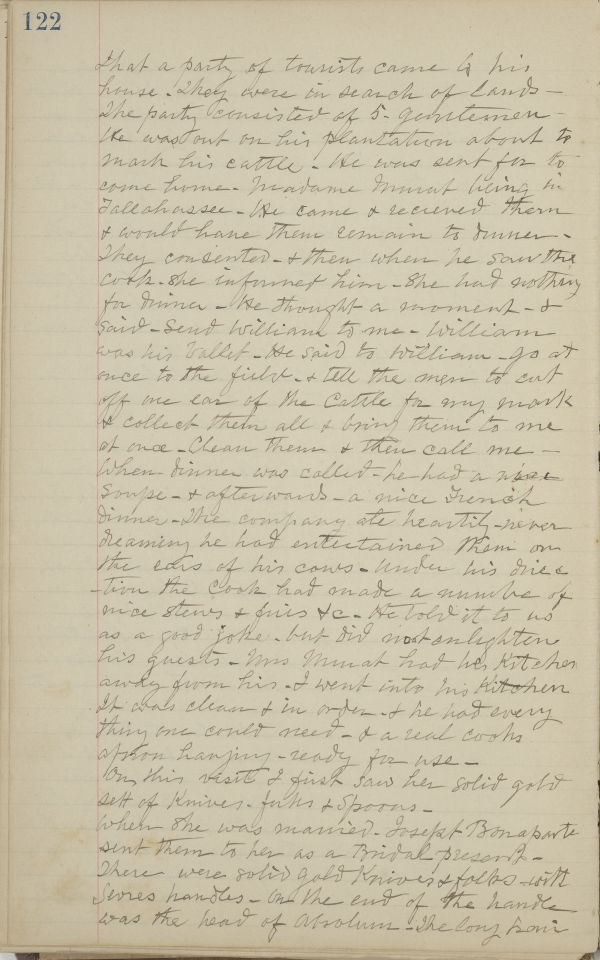 122
that a party of tourists came to his
house. They were in search of Lands—
The party consisted of 5. gentlemen—
He was out on his plantation about to
mark his cattle. He was sent for to
come home. Madame Murat being in
Tallahassee. He came & recieved them
& would have them remain to dinner.
They consented. & then when he saw the
cook. She informed him. She had nothing
for dinner. He thought a moment. &
said. Send William to me. William
was his Vallet. He said to William. go at
once to the field. & tell the men to cut
off one ear of the Cattle for my mark
& collect them all & bring them to me
at once. Clean them & then call me—
When dinner was called. he had a nice
Soupe. & afterwards. a nice French
dinner. The company ate heartily. never
dreaming he had entertained them on
the ears of his cows. Under his direc
tion the Cook had made a numbe of
nice stews & fries &c. He told it to us
as a good joke. but did not enlighten
his guests. Mrs Murat had her Kitchen
away from his. I went into his Kitchen
It was clean & in order. & he had every
thing one could need. & a real cooks
apron hanging. ready for use—
On this visit I first saw her solid gold
sett of Knives. forks & Spoons—
When she was married. Joseph Bonaparte
sent them to her as a Bridal present—
There were solid gold Knives & folks with
Sevres handles. On the end of the handle
was the head of Absolum. The long hair